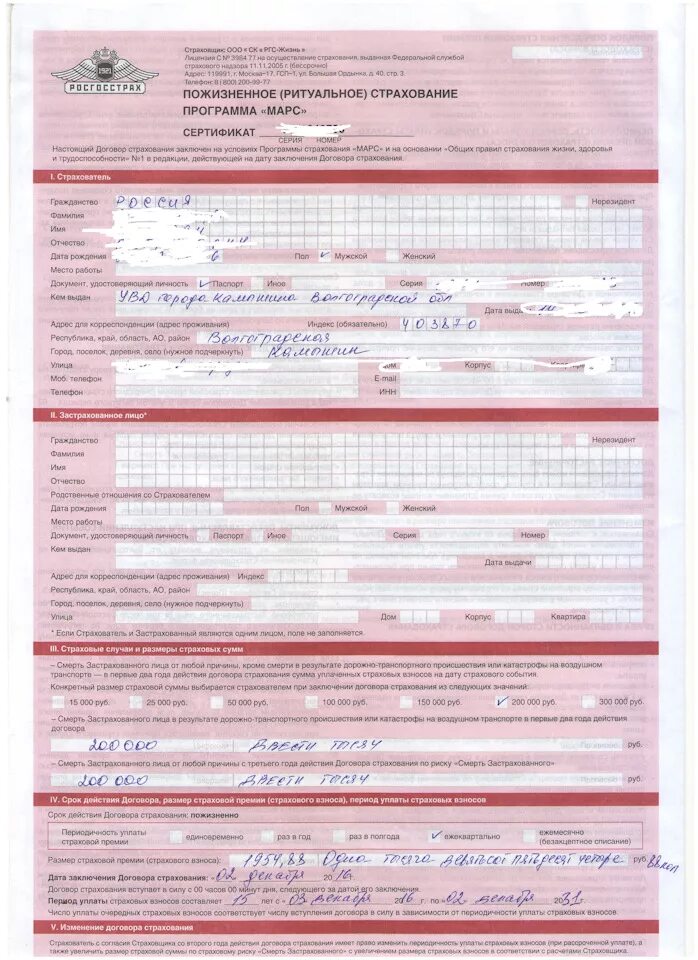 Страховщик: ООО «СК «РГС-Жизнь»
Лицензия С № 3984 77 на осуществление страхования, выданная Федеральной службой
страхового надзора 11.11.2005 г. (бессрочно)
Адрес: 119991, г. Москва-17, ГСП-1, ул. Большая Ордынка, д. 40, стр. 3.
Телефон: 8 (800) 200-99-77
1921
РОСГОССТРАХ
ПОЖИЗНЕННОЕ (РИТУАЛЬНОЕ) СТРАХОВАНИЕ
ПРОГРАММА «МАРС»
СЕРТИФИКАТ
СЕРИЯ НОМЕР
Настоящий Договор страхования заключен на условиях Программы страхования «МАРС» и на основании «Общих правил страхования жизни, здоровья
и трудоспособности» №1 в редакции, действующей на дату заключения Договора страхования.
I. Страхователь
Гражданство РОССИЯ Нерезидент
Фамилия
Имя
Отчество
Дата рождения 6 Пол ✓ Мужской Женский
Место работы
Документ, удостоверяющий личность ✓ Паспорт Иное Серия Номер
Кем выдан УВД города Камышина Волгоградской обл
Дата выдачи
Адрес для корреспонденции (адрес проживания) Индекс (обязательно) 403870
Республика, край, область, АО, район Волгоградская
Город, поселок, деревня, село (нужное подчеркнуть) Камышин
Улица Дом Корпус
Моб. телефон E-mail
Телефон ИНН
II. Застрахованное лицо*
Гражданство Нерезидент
Фамилия
Имя
Отчество
Родственные отношения со Страхователем
Дата рождения Пол Мужской Женский
Место работы
Документ, удостоверяющий личность Паспорт Иное Серия Номер
Кем выдан
Дата выдачи
Адрес для корреспонденции (адрес проживания) Индекс
Республика, край, область, АО, район
Город, поселок, деревня, село (нужное подчеркнуть)
Улица Дом Корпус Квартира
* Если Страхователь и Застрахованный являются одним лицом, поле не заполняется.
III. Страховые случаи и размеры страховых сумм
– Смерть Застрахованного лица от любой причины, кроме смерти в результате дорожно-транспортного происшествия или катастрофы на воздушном
транспорте — в первые два года действия договора страхования сумма уплаченных страховых взносов на дату страхового события.
Конкретный размер страховой суммы выбирается страхователем при заключении договора страхования из следующих значений:
15 000 руб. 25 000 руб. 50 000 руб. 100 000 руб. 150 000 руб. ✓ 200 000 руб. 300 000 руб.
– Смерть Застрахованного лица в результате дорожно-транспортного происшествия или катастрофы на воздушном транспорте в первые два года действия
договора
200 000 ДВЕСТИ ТЫСЯЧ руб.
– Смерть Застрахованного лица от любой причины с третьего года действия Договора страхования по риску «Смерть Застрахованного»
200 000 ДВЕСТИ ТЫСЯЧ руб.
IV. Срок действия Договора, размер страховой премии (страхового взноса), период уплаты страховых взносов
Срок действия Договора страхования: пожизненно
Периодичность уплаты страховой премии единовременно раз в год раз в полгода ✓ ежеквартально ежемесячно (безакцептное списание)
Размер страховой премии (страхового взноса): 1954,88 Одна тысяча девятьсот пятьдесят четыре руб. 88 коп
Дата заключения Договора страхования: 02 декабря 2016г.
Договор страхования вступает в силу с 00 часов 00 минут дня, следующего за датой его заключения.
Период уплаты страховых взносов составляет 15 лет с 03 декабря 2016 г. по 02 декабря 2031г.
Число уплаты очередных страховых взносов соответствует числу вступления договора в силу в зависимости от периодичности уплаты страховых взносов.
V. Изменение договора страхования
Страхователь с согласия Страховщика со второго года действия договора страхования имеет право изменить периодичность уплаты страховых взносов (при рассроченной уплате), а
также увеличить размер страховой суммы по страховому риску «Смерть Застрахованного» с увеличением размера страховых взносов в соответствии с расчетами Страховщика.